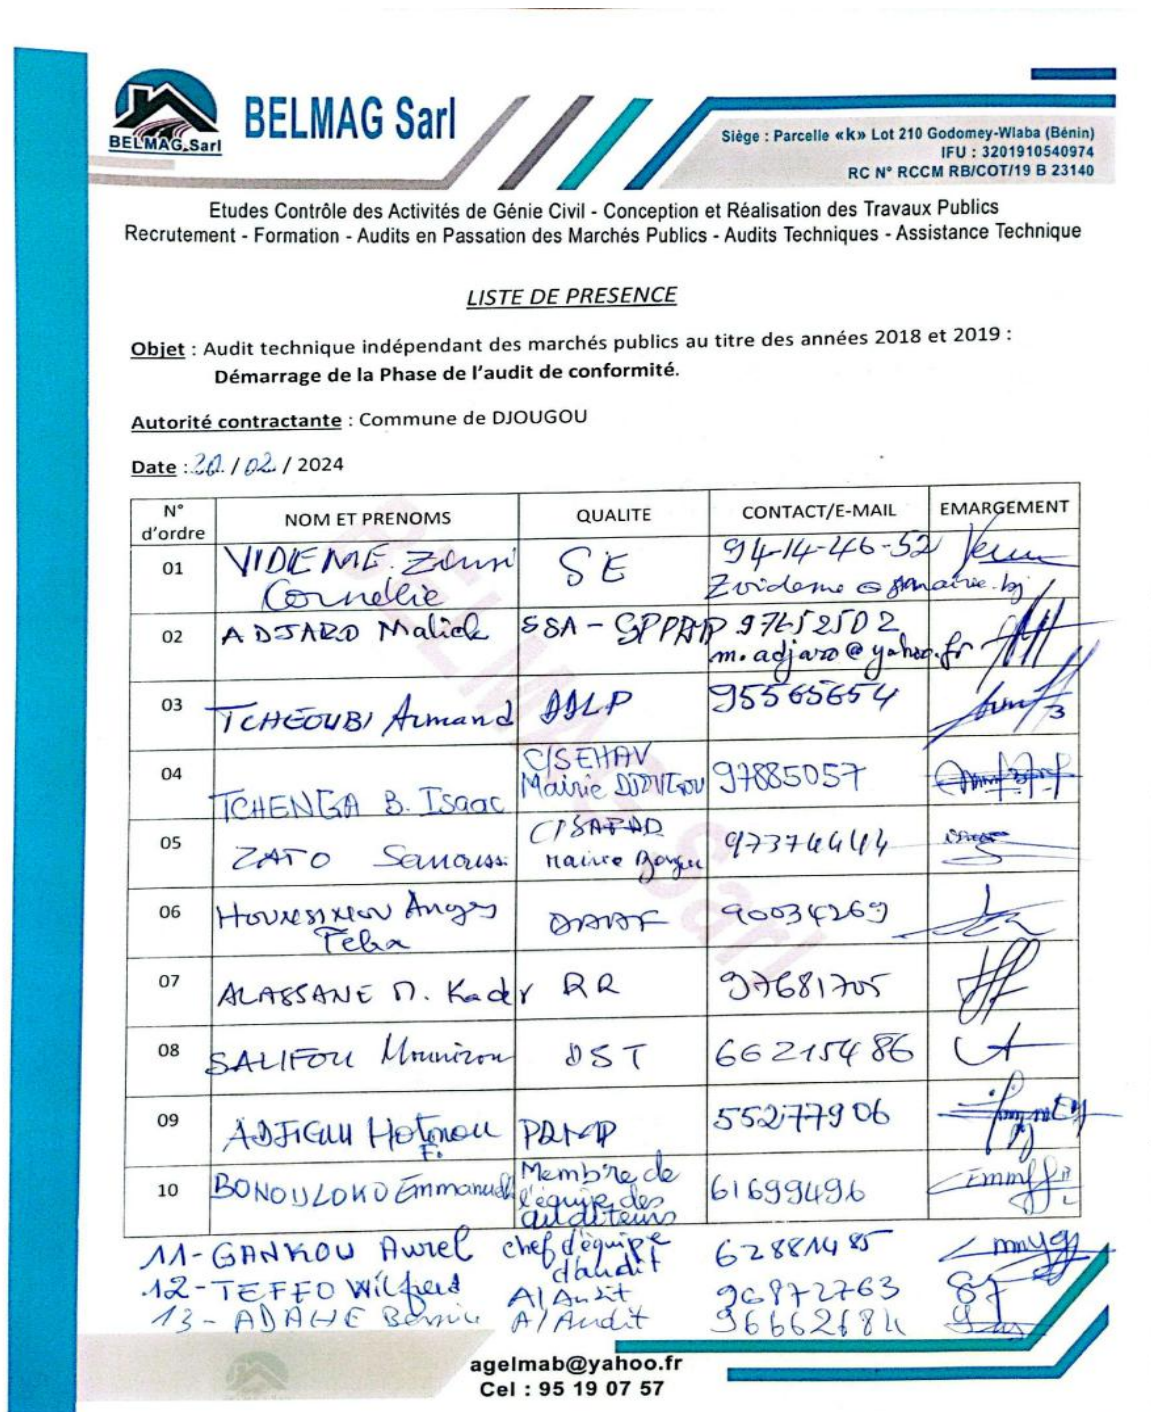 BELMAG Sarl
BELMAG Sarl
Siège : Parcelle «k» Lot 210 Godomey-Wlaba (Bénin)
IFU : 3201910540974
RC N° RCCM RB/COT/19 B 23140
Etudes Contrôle des Activités de Génie Civil - Conception et Réalisation des Travaux Publics
Recrutement - Formation - Audits en Passation des Marchés Publics - Audits Techniques - Assistance Technique
LISTE DE PRESENCE
Objet : Audit technique indépendant des marchés publics au titre des années 2018 et 2019 :
Démarrage de la Phase de l'audit de conformité.
Autorité contractante : Commune de DJOUGOU
Date : 20 / 02 / 2024
N° d'ordre NOM ET PRENOMS QUALITE CONTACT/E-MAIL EMARGEMENT
01 VIDEME SE 94-14-46-52
Cornélie
02 ADJARO Malick SSA - 97652502
m.adjaro@yahoo.fr
03 TCHEOUBI Armand 95565654
04 TCHENGA B. Isaac Mairie DJOUGOU 97885057
05 ZATO Sanoussi Mairie 97374444
06 90034269
07 ALASSANE M. Kader RR 97681705
08 SALIFOU DST 66215486
09 PRMP 55277906
10 BONOULOKO Emmanuel Membre de l'équipe des auditeurs 61699496
11- GANKOU Aurel chef d'équipe d'audit 62881485
12- TEFFO Wilfried A/Audit 96872763
13- A/Audit
agelmab@yahoo.fr
Cel : 95 19 07 57
BELMAG Sarl